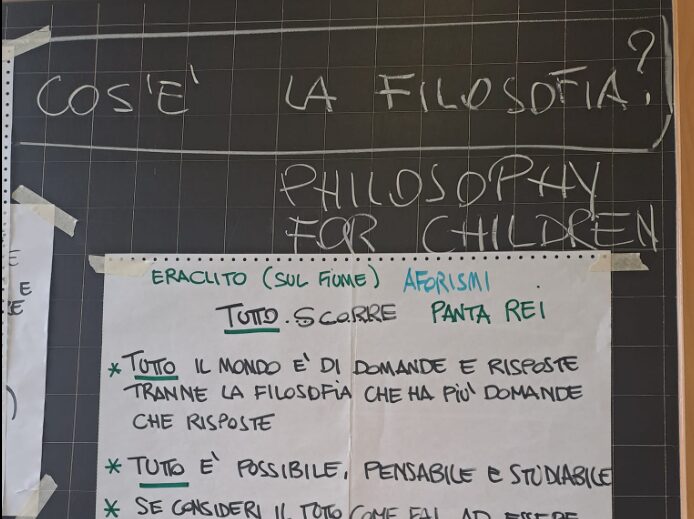 COS'E' LA FILOSOFIA?
PHILOSOPHY
FOR CHILDREN
E
E
RE
)
ERACLITO (SUL FIUME) AFORISMI
TUTTO.SCORRE PANTA REI
* TUTTO IL MONDO E' DI DOMANDE E RISPOSTE
TRANNE LA FILOSOFIA CHE HA PIU' DOMANDE
CHE RISPOSTE
* TUTTO E' POSSIBILE, PENSABILE E STUDIABILE
* SE CONSIDERI IL TUTTO COME FAI AD ESSERE